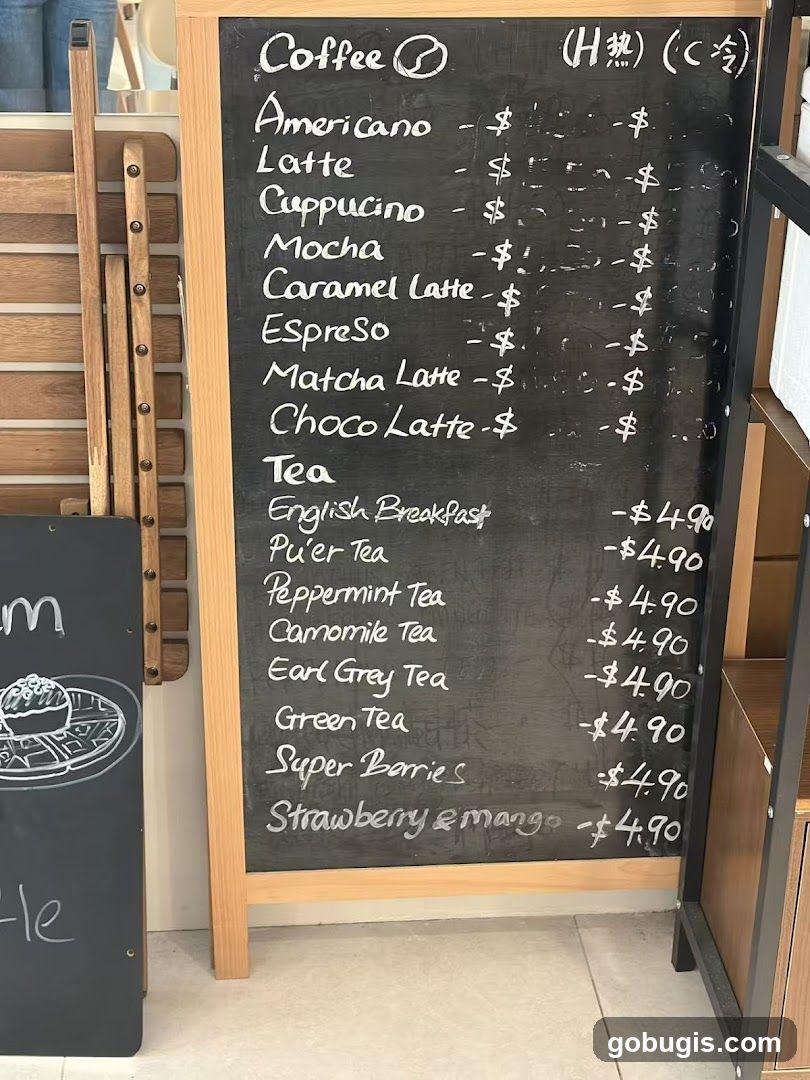 Coffee (H热) (C冷)
Americano - $ - $
Latte - $ - $
Cuppucino - $ - $
Mocha - $ - $
Caramel Latte - $ - $
Espreso - $ - $
Matcha Latte - $ - $
Choco Latte - $ - $
Tea
English Breakfast - $4.90
Pu'er Tea - $4.90
Peppermint Tea - $4.90
Camomile Tea - $4.90
Earl Grey Tea - $4.90
Green Tea - $4.90
Super Berries - $4.90
Strawberry & mango - $4.90
gobugis.com